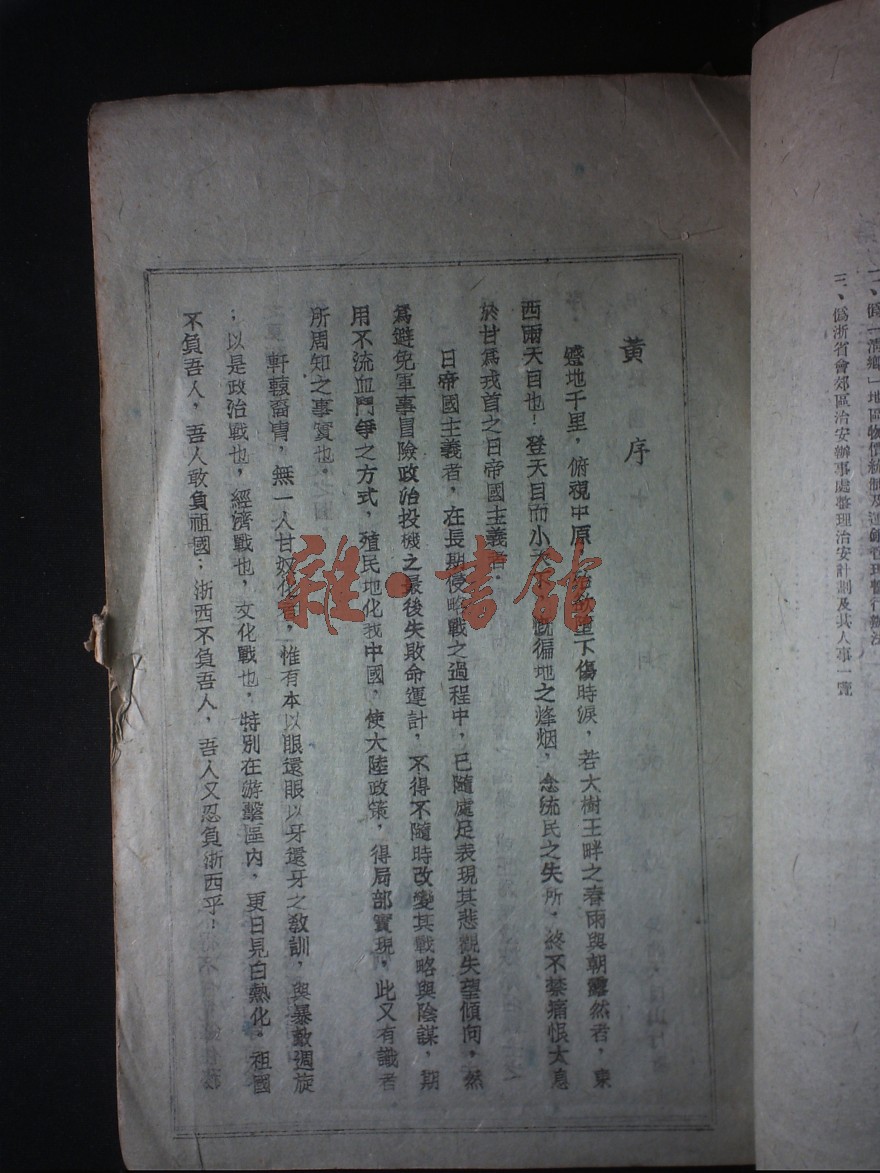 二、僞「清鄉」地區物價統制及運銷管理暫行辦法
三、僞浙省會郊區治安辦事處整理治安計劃及其人事一覽
黃序
蹙地千里，俯視中原，下傷時淚，若大樹王畔之春雨與朝露然者，東
西兩天目也！登天目而小天下，慨徧地之烽烟，念流民之失所，終不禁痛恨太息
於甘爲戎首之日帝國主義者．
日帝國主義者，在長期侵略戰之過程中，已隨處足表現其悲觀失望傾向，然
爲避免軍事冒險政治投機之最後失敗命運計，不得不隨時改變其戰略與陰謀，期
用不流血鬥爭之方式，殖民地化我中國，使大陸政策，得局部實現，此又有識者
所周知之事實也．
軒轅裔冑，無一人甘奴化者，惟有本以眼還眼以牙還牙之敎訓，與暴敵週旋
；以是政治戰也，經濟戰也，文化戰也，特別在游擊區内，更日見白熱化。祖國
不負吾人，吾人敢負祖國；浙西不負吾人，吾人又忍負浙西乎！
雜·書館